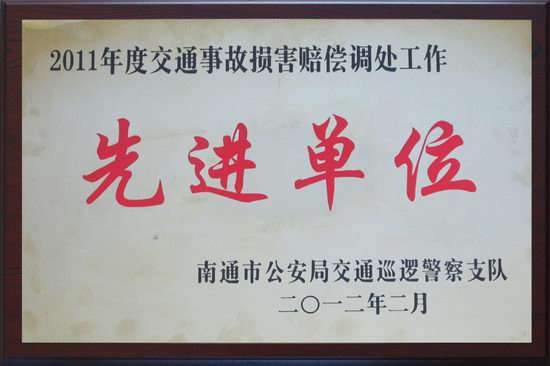 2011年度交通事故损害赔偿调处工作
先进单位
南通市公安局交通巡逻警察支队
二〇一二年二月